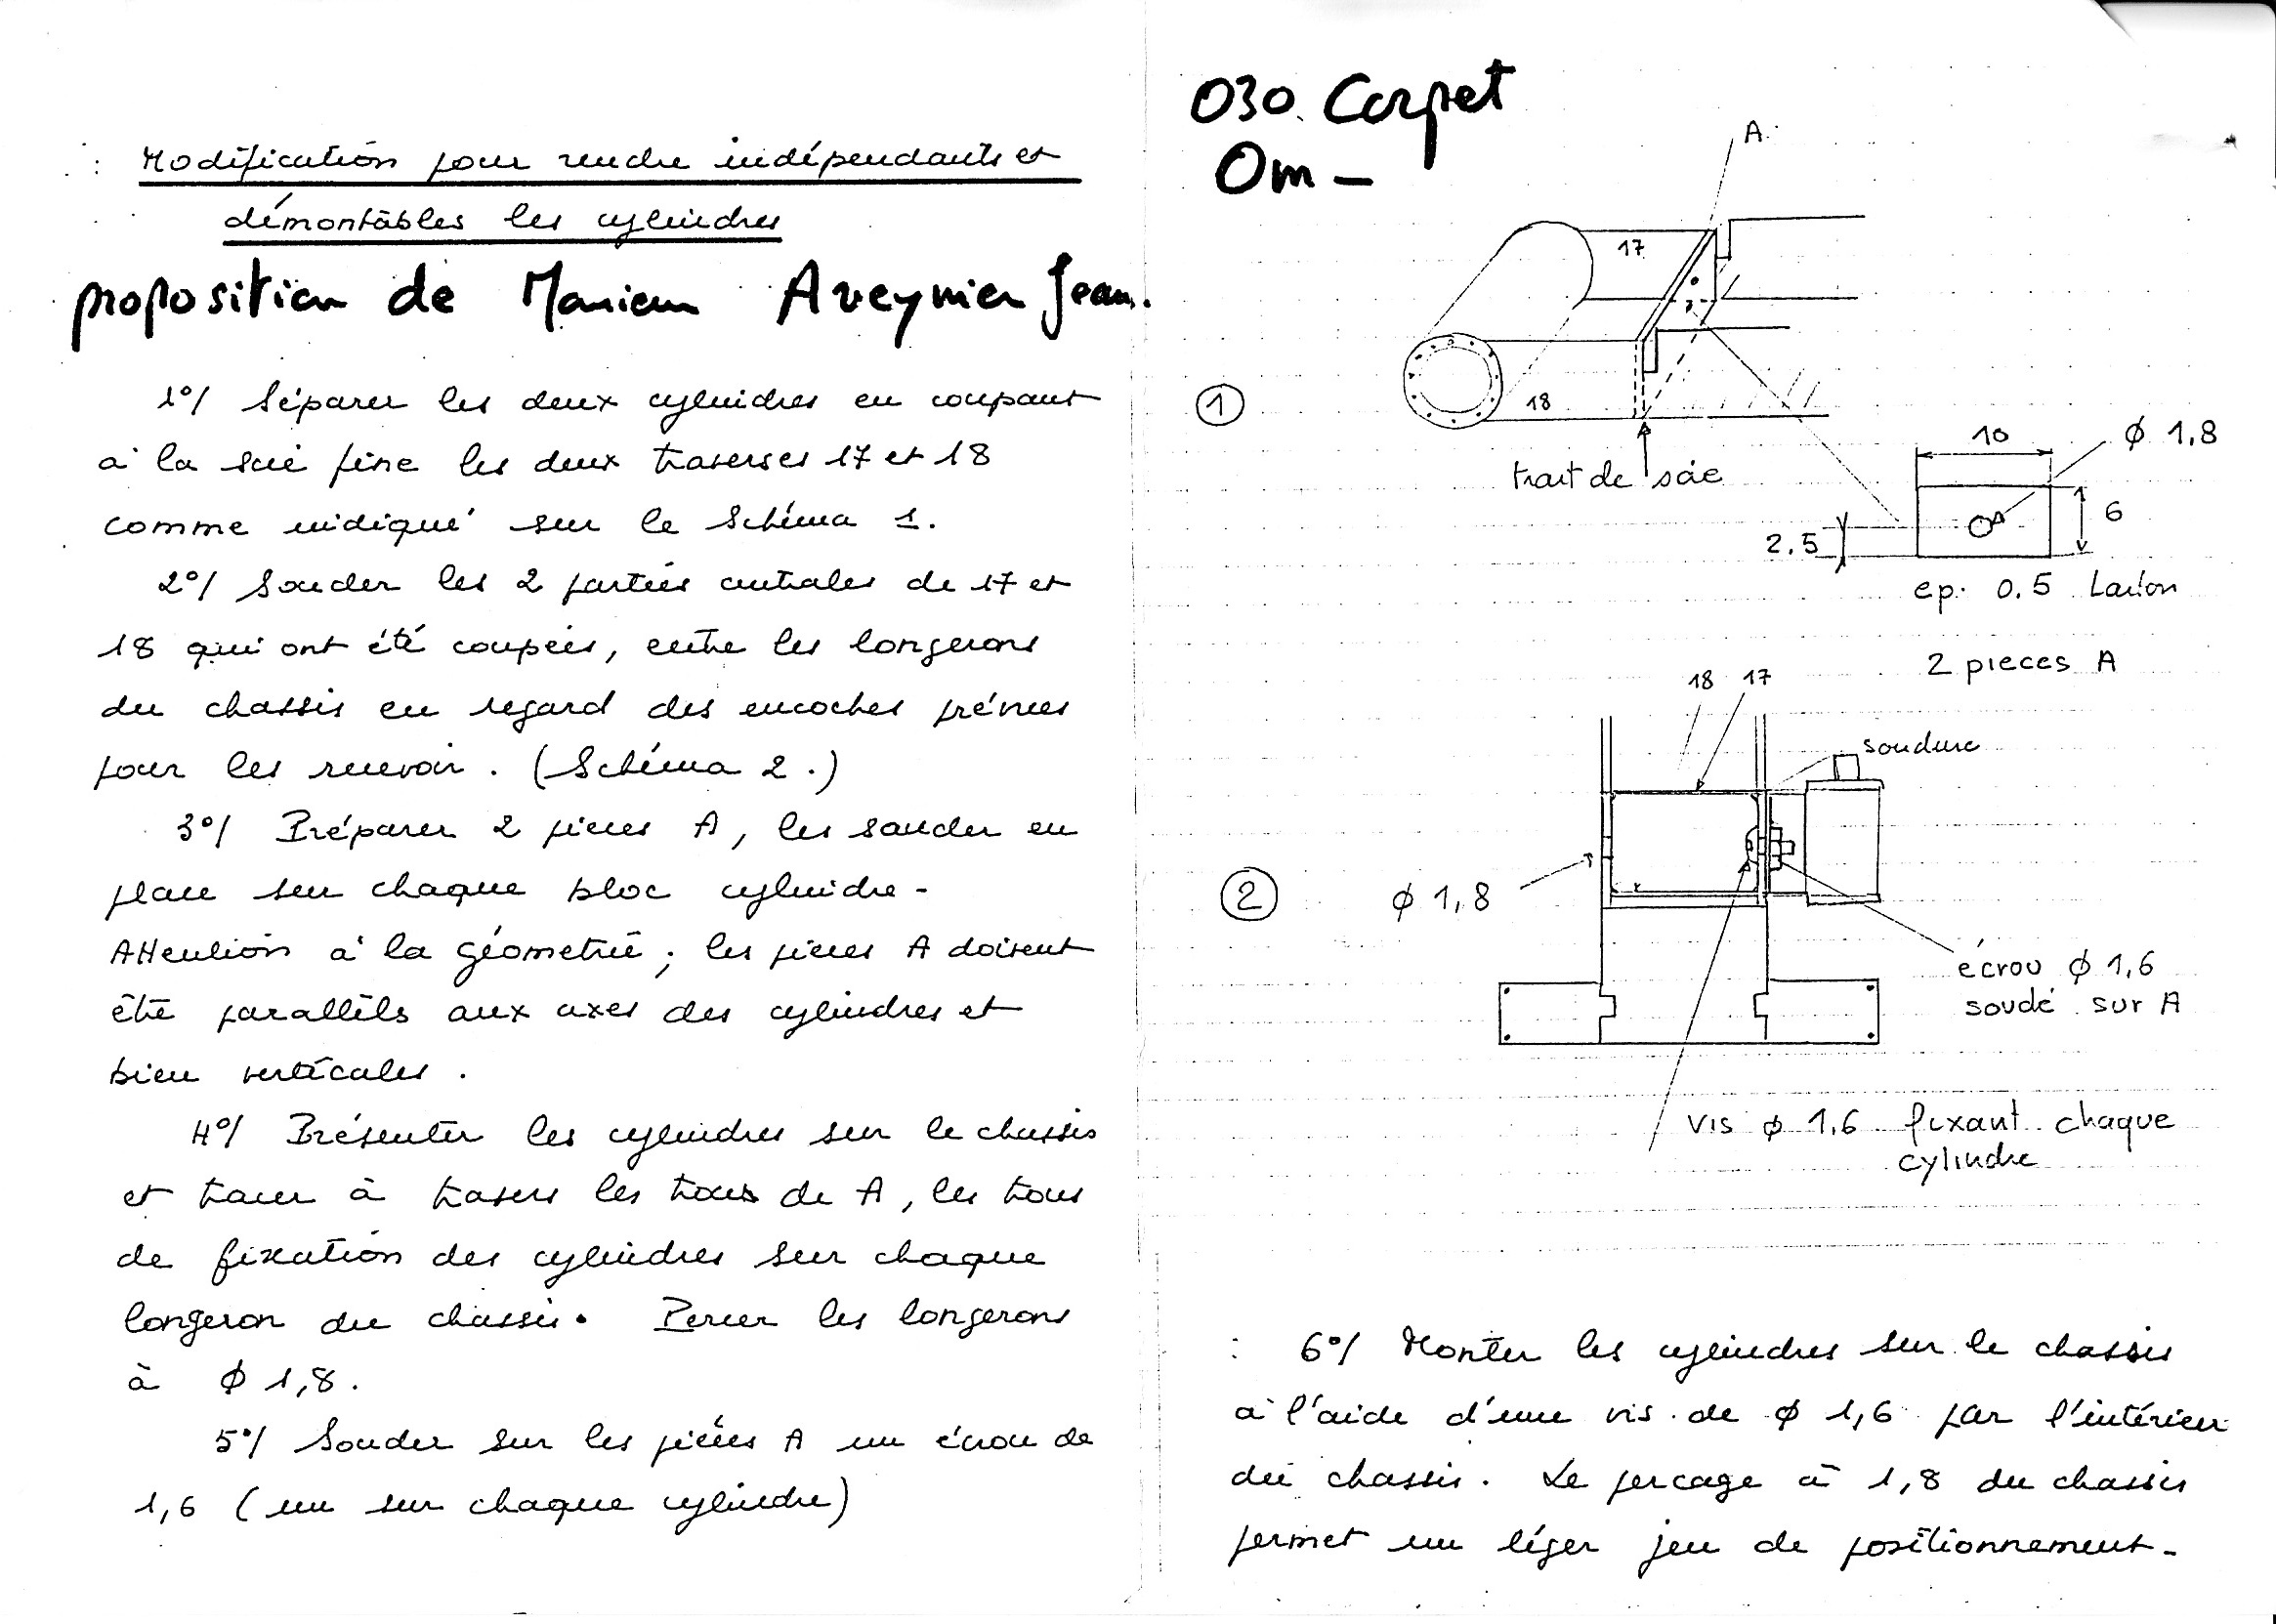 Modification pour rendre indépendants et
démontables les cylindres
proposition de Monsieur Aveynier Jean.
1°/ Séparer les deux cylindres en coupant
à la scie fine les deux traverses 17 et 18
comme indiqué sur le Schéma 1.
2°/ Souder les 2 parties centrales de 17 et
18 qui ont été coupées, entre les longerons
du chassis en regard des encoches prévues
pour les recevoir. (Schéma 2.)
3°/ Préparer 2 pieces A, les souder en
place sur chaque bloc cylindre -
Attention à la géometrie ; les pieces A doivent
être parallèles aux axes des cylindres et
bien verticales.
4°/ Présenter les cylindres sur le chassis
et tracer à travers les trous de A, les trous
de fixation des cylindres sur chaque
longeron du chassis. Percer les longerons
à ϕ 1,8.
5°/ Souder sur les pièces A un écrou de
1,6 (un sur chaque cylindre)
030. Corpet
Om -
A.
17
18
1
trait de scie
10
ϕ 1,8
6
2.5
ep. 0.5 Laiton
2 pieces A
18 17
soudure
2
ϕ 1,8
écrou ϕ 1,6
soudé sur A
vis ϕ 1.6 fixant chaque
cylindre
6°/ Monter les cylindres sur le chassis
à l'aide d'une vis de ϕ 1,6 par l'intérieur
du chassis. Le percage à 1,8 du chassis
permet un léger jeu de positionnement -